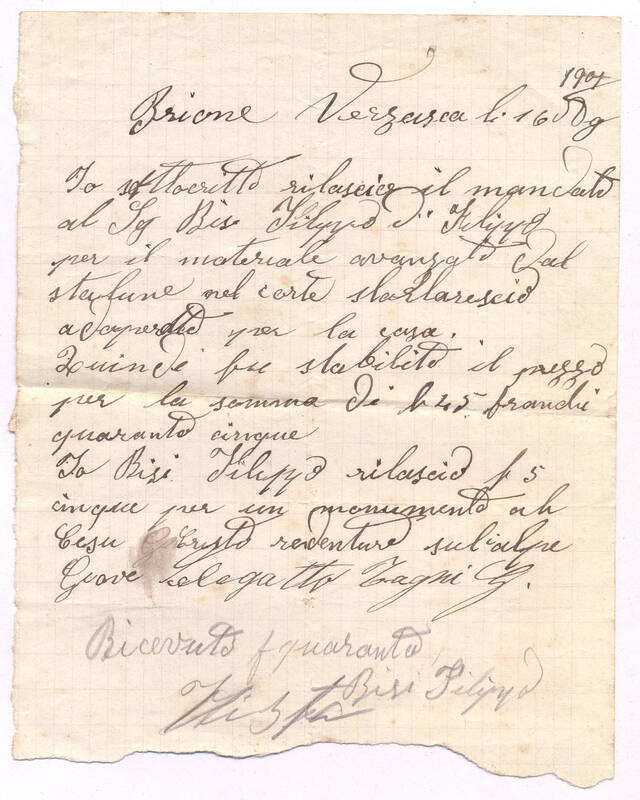 1901
Brione Verzasca li 16
Io sottocritto rilascio il mandato
al Sg Bisi Filippo di Filippo
per il materiale avanzato dal
nel corte
adoperato per la casa.
Quindi fu stabilito il prezzo
per la somma di fr 45 franchi
quaranto cinque
Io Bisi Filippo rilascio f 5
cinque per un monumento al
Gesu Cristo redentore sul'alpe
Zagni G.
Ricevuto f quaranto
Bisi Filippo